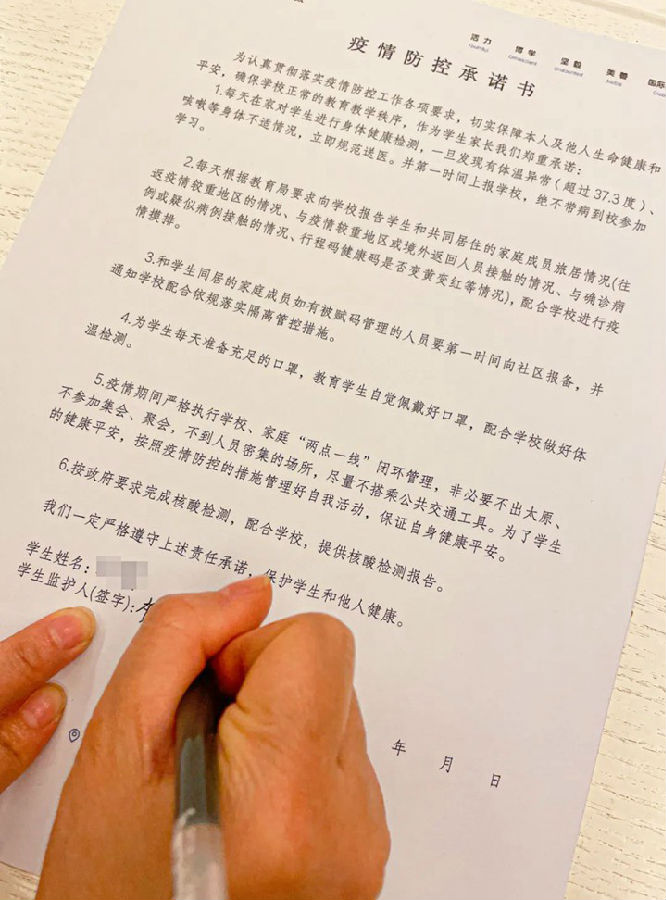 活力 博学 坚毅 美善 国际
疫情防控承诺书
为认真贯彻落实疫情防控工作各项要求，切实保障本人及他人生命健康和
平安，确保学校正常的教育教学秩序，作为学生家长我们郑重承诺：
1.每天在家对学生进行身体健康检测，一旦发现有体温异常（超过37.3度）、
咳嗽等身体不适情况，立即规范送医。并第一时间上报学校，绝不带病到校参加
学习。
2.每天根据教育局要求向学校报告学生和共同居住的家庭成员旅居情况(住
返疫情较重地区的情况、与疫情较重地区或境外返回人员接触的情况、与确诊病
例或疑似病例接触的情况、行程码健康码是否变黄变红等情况)，配合学校进行疫
情摸排。
3.和学生同居的家庭成员如有被赋码管理的人员要第一时间向社区报备，并
通知学校配合依规落实隔离管控措施。
4.为学生每天准备充足的口罩，教育学生自觉佩戴好口罩，配合学校做好体
温检测。
5.疫情期间严格执行学校、家庭“两点一线”闭环管理，非必要不出太原、
不参加集会、聚会，不到人员密集的场所，尽量不搭乘公共交通工具。为了学生
的健康平安，按照疫情防控的措施管理好自我活动，保证自身健康平安。
6.按政府要求完成核酸检测，配合学校，提供核酸检测报告。
我们一定严格遵守上述责任承诺，保护学生和他人健康。
学生姓名：
学生监护人(签字)：
年 月 日